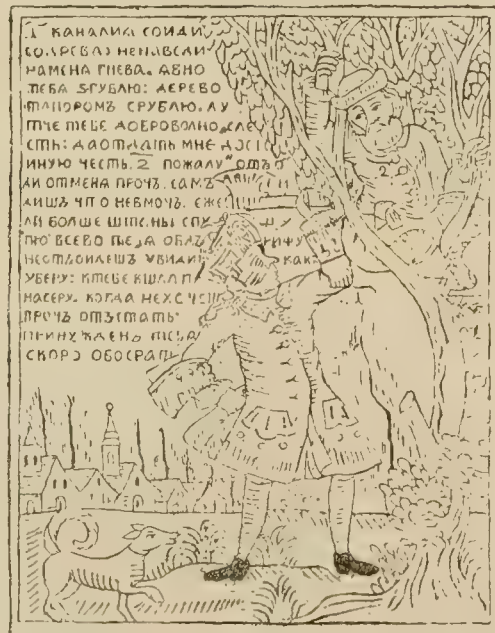 1 КАНАЛИѦ СОИДИ
СО ДРЕВА НЕНАВЕДИ
НАМЕНА ГНЕВА. АВНО
ТЕБА ЗГУБЛЮ: ДЕРЕВО
ТАПОРОМЪ СРУБЛЮ. ЛУ
ТЧЕ ТЕБЕ ДОБРОВОЛНО СЛЕ
СТЬ: ДАОТДАТЬ МНЕ ДОСТ
ИНУЮ ЧЕСТЬ. 2 ПОЖАЛУ
ДИ ОТМЕНА ПРОЧЪ. САМЪ
ДИШЬ ЧТО НЕВМОЧЬ. ЕЖЕ
ЛИ БОЛШЕ
ВСЕВО ТЕБА
УВИДИ КАКЪ
УБЕРУ: КТЕБЕ
НАСЕРУ. КОГДА НЕХ
ПРОЧЪ ОТЪСТАТЬ
ПРИНУЖДЕНЪ ТЕБА
СКОРО ОБОСРАТЬ
2